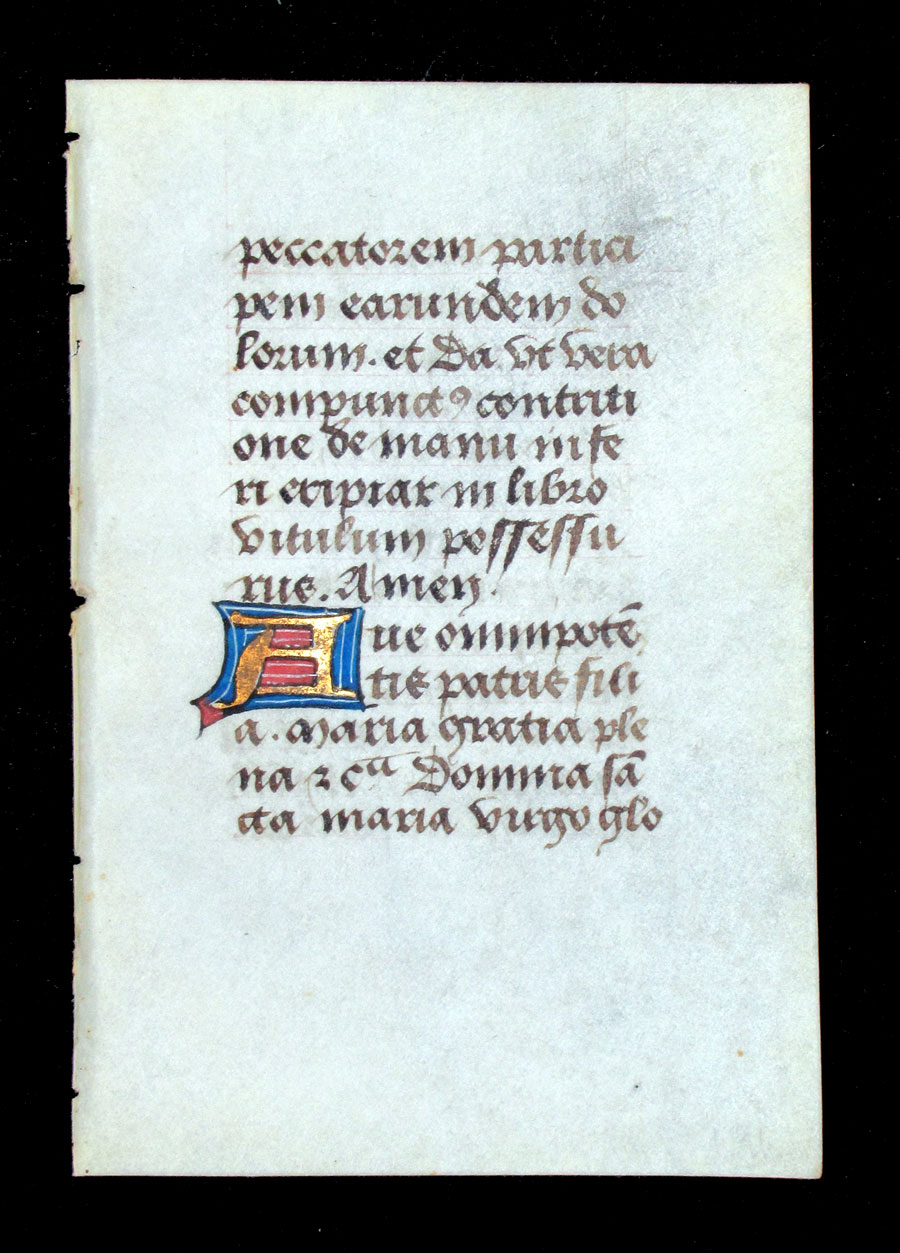 peccatorem partici
pem earundem do
lorum. et da vt vera
compunctꝯ contriti
one de manu infe
ri eripiar in libro
vitulum possessu
rus. Amen.
Aue omnipotē
tis patris fili
a. Maria gratia ple
na ⁊ cᵃ Domina sā
cta maria virgo glo